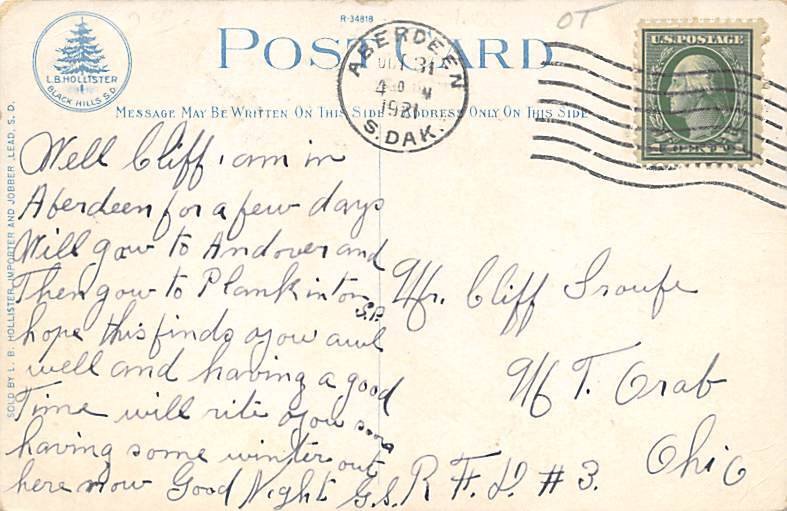 R-34818
OT
POST CARD
L.B. HOLLISTER
BLACK HILLS S.D.
MESSAGE MAY BE WRITTEN ON THIS SIDE
ADDRESS ONLY ON THIS SIDE
ABERDEEN
31
4
1921
S. DAK.
U.S. POSTAGE
SOLD BY L. B. HOLLISTER, IMPORTER AND JOBBER, LEAD, S. D.
Well Cliff i am in
Aberdeen for a few days
Will gow to Andover and
Then gow to Plankinton
S.D.
hope this finds you awl
well and having a good
Time will rite you soon
having some winter out
here now Good Night G.S.
Mr. Cliff Sroufe
Mt. Orab
Ohio
R. F. D. # 3.